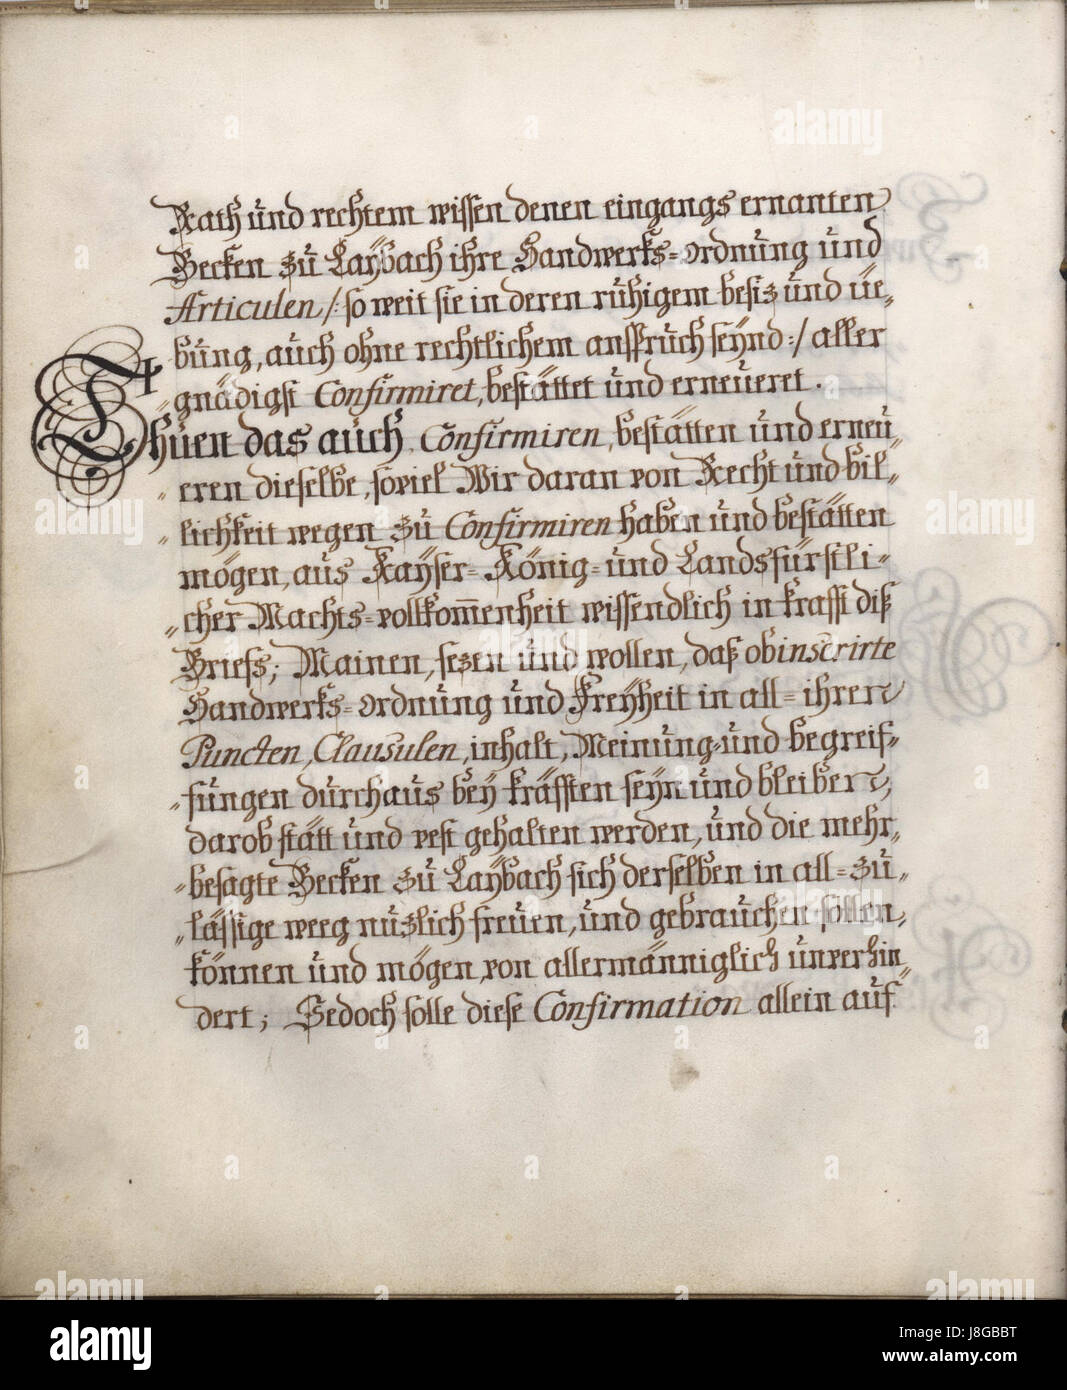 Rath und rechtem wissen denen eingangs ernanten
Becken zu Laÿbach ihre Handwerks=ordnung und
Articulen /: so weit sie in deren ruhigem besiz und üe„
bung, auch ohne rechtlichem anspruch seÿnd :/ aller
„gnädigst Confirmiret, bestättet und erneueret.
Thuen das auch Confirmiren, bestätten und erneu„
„eren dieselbe, soviel Wir daran von Recht und bil„
„lichkeit wegen zu Confirmiren haben und bestätten
mögen, aus Kaÿser= König= und Landsfürstli„
„cher Machts=vollkom̄enheit wissendlich in krafft diß
Briefs; Mainen, sezen und wollen, daß obinserirte
Handwerks=ordnung und Freÿheit in all=ihren
Puncten, Clausulen, inhalt, Meinung=und begreif„
„fungen durchaus beÿ kräfften seÿn und bleiben,
darob statt und vest gehalten werden, und die mehr„
„besagte Becken zu Laÿbach sich derselben in all=zu„
„lässige weeg nuzlich freuen, und gebrauchen sollen,
können und mögen, von allermänniglich unverhin„
dert; Jedoch solle diese Confirmation allein auf
alamy
Image ID: J8GBBT
www.alamy.com